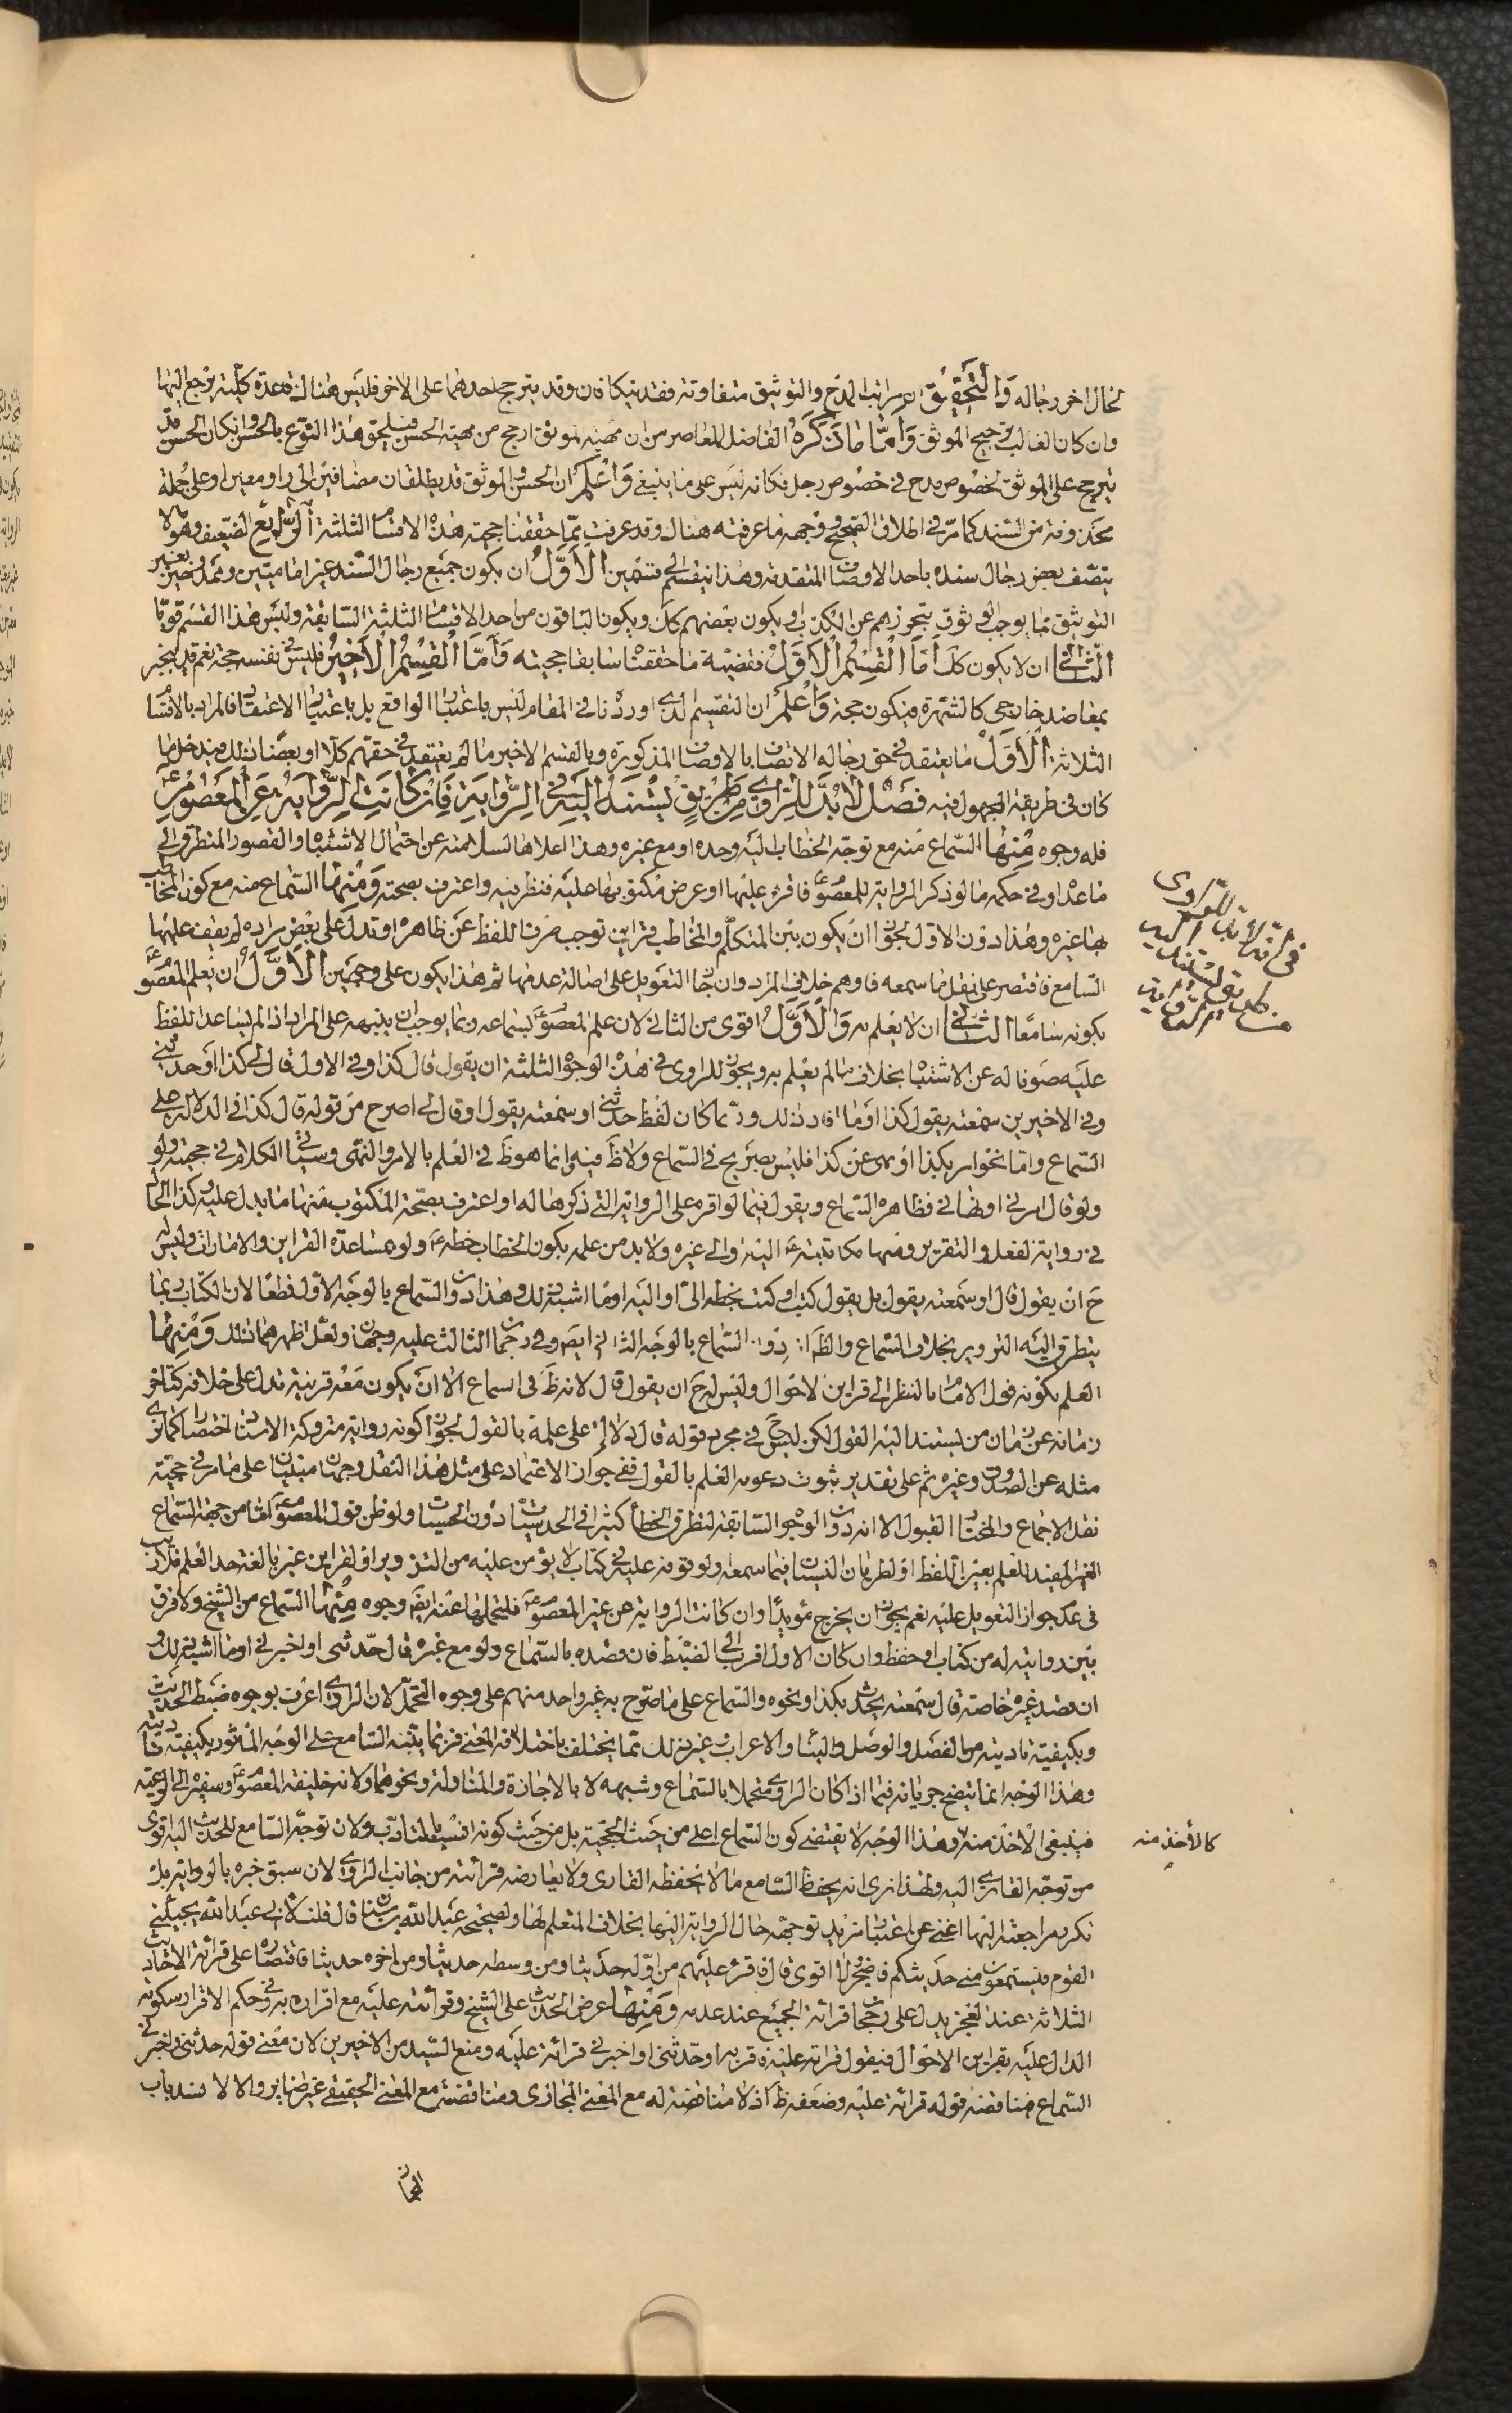 لحال اخر رجاله وَالتَّحقيقُ ان مراتب المدح والتوثيق متفاوتة فقد يتكافان وقد يترجح احدهما على الاخر فليس هناك قاعدة كلية يرجع اليها
وان كان الغالب ترجيح الموثق وَامّا ماذَكَرَهُ الفاضل المعاصر من ان مهية الموثق ارجح من مهية الحسن فيلحق هذا النوع بالحسن وان كان الحسن قد
يترجح على الموثق لخصوص مدح في خصوص رجل فكانه ليس على ما ينبغي وَاعْلَم ان الحسن والموثق قد يطلقان مضافين الى راو معين او على جملة
محذوفة من السند كما مرّ في اطلاق الصحيح ووجهه ما عرفته هناك وقد عرفت ممّا حققنا حجية هذه الاقسام الثلثة الرّابع الضعيف وهو ما لا
يتصف بعض رجال سنده باحد الاوصاف المتقدمة وهذا ينقسم الى قسمين الاَوّلُ ان يكون جميع رجال السند غير امامیین وممدوحين بغير
التوثيق بما يوجب الوثوق بتحرزهم عن الكذب او يكون بعضهم كك ويكون الباقون من احد الاقسام الثلثة السّابقة وليس هذا القسم قويّا
الثّاني ان لا يكون كك اَمّا الْقِسْمُ الاَوَّلُ فقضيّة ما حققنا سابقا حجيته وَاَمّا الْقِسْمُ الاَخيرُ فليس في نفسه حجة نعم قد ينجبر
بمعاضد خارجي كالشهرة فيكون حجة وَاعْلَم ان التقسيم الذى اوردنا في المقام ليس باعتبار الواقع بل باعتبار الاعتقاد فالمراد بالاقسام
الثلاثة الاُوَل ما يعتقد في حق رجاله الاتصاف بالاوصاف المذكورة وبالقسم الاخير ما لم يعتقد في حقهم كلّا او بعضا ذلك فيدخل ما
كان في طريقة المجهول فيه فَصْل لابُدَّ للرّاوى مِنْ طَريقٍ يَسْتَنِدُ اِلَيْهِ في الرِّوايَةِ فَاِنْ كانَتِ الرِّوايَةُ عَنِ المَعْصُومِ ع
فله وجوه مِنْها السّماع منه مع توجّه الخطاب اليه وحده او مع غيره وهذا اعلاها لسلامته عن احتمال الاشتباه والقصور المتطرق الى
ما عداه وفي حكمه ما لو ذكر الراوي الرواية للمعصوم ع فاقره عليها او عرض مكتوبها عليه فنظر فيه واعترف بصحته وَمِنْها السّماع منه مع كون المخاطب
بها غيره وهذا دون الاول لجواز ان يكون بين المتكلّم والمخاطب قراين توجب صرف اللفظ عن ظاهره او تدل على بعض مراده لم يقف عليها
السّامع فاقتصر على نقل ما سمعه فاوهم خلاف المراد وان جاز التعويل على اصالة عدمها ثم هذا يكون على وجهين الاَوَّلُ ان يعلم المعصوم ع
بكونه سامعًا الثّانی ان لا يعلم به وَالاَوَّلُ اقوى من الثاني لان علم المعصوم ع بسماعه ربما يوجب ان ينبهه على المراد اذا لم يساعد اللفظ
عليه صونا له عن الاشتباه بخلاف ما لم يعلم به ويجوز للراوى في هذه الوجوه الثلثة ان يقول قال كذا وفي الاول قال لى كذا او حدثنى
وفي الاخيرين سمعته يقول كذا او ما افاد ذلك وربّما كان لفظ حدثنى او سمعته يقول او قال لى اصرح من قوله قال كذا في الدلالة على
السّماع وامّا نحو امر بكذا او نهى عن كذا فليس بصريح في السّماع ولا ظ فيه وانما هو ظ في العلم بالامر والنهى وسياتى الكلام في حجيته ولو
ولو قال امرنى او نهانى فظاهره السّماع ويقول فيما لو اقره على الرواية التى ذكرها له او اعترف بصحّة المكتوب منها ما يدل عليه وكذا الحال
في رواية الفعل والتقرير ومنها مكاتبته ع اليه او الى غيره ولا بد من علمه بكون الخطاب خطه ع ولو بمساعدة القراين والامارات وليس له
ح ان يقول قال او سمعته يقول بل يقول كتب او كتب بخطه الىّ او اليه او ما اشبه ذلك وهذا دون السّماع بالوجه الاول قطعًا لان الكتاب ربما
يتطرق اليه التزوير بخلاف السّماع والظ انه دون السّماع بالوجه الثاني ايضا وفي رجحان الثالث عليه وجهان ولعلّ اظهرهما ذلك وَمِنْها
العلم بكونه قول الامام بالنظر الى قراين الاحوال وليس له ح ان يقول قال لانه ظ في السماع الا ان يكون معه قرينة تدل على خلافه كتاخر
زمانه عن زمان من يسند اليه القول لكن ليس ح في مجرد قوله قال دلالة على علمه بالقول لجواز كونه رواية متروكة الاسناد اختصارا كما نرى
مثله عن الصدوق وغيره ثم على تقدير ثبوت دعويه العلم بالقول ففي جواز الاعتماد على مثل هذا النقل وجهان مبنيان على ما مر في حجية
نقل الاجماع والمختار القبول الا انه دون الوجوه السّابقة لتطرق الخطأ كثيرا في الحدسيات دون الحسيات ولو ظن قول المعصوم ع كفا من جهة السّماع
الغير المفيد للعلم بعين اللفظ او لطريان النسيان فيما سمعه ولوقوفه عليه في كتاب لا يؤمن عليه من التزوير او لقراين غير بالغة حد العلم فلا ريب
في عدم جواز التعويل عليه نعم يجوز ان يخرج مؤيدًا وان كانت الرواية عن غير المعصوم ع فلتحملها عنه ايضا وجوه مِنْها السّماع من الشيخ ولا فرق
بين روايته له من كتاب او حفظ وان كان الاول اقرب الى الضبط فان قصده بالسّماع ولو مع غيره قال حدّثنى او اخبرنى او ما اشبه ذلك و
ان قصد غيره خاصة قال سمعته يحدّث بكذا او نحوه والسّماع على ما صّرح به غير واحد منهم اعلى وجوه التحمّل لان الراوى اعرف بوجوه ضبط الحديث
وبكيفية تاديته من الفصل والوصل والبناء والاعراب وغير ذلك مما يختلف باختلافه المعنى فربما يتنبه السّامع على الوجه الماثور بكيفية تاديته
وهذا الوجه انما يتضح جريانه فيما اذا كان الراوى متحملا بالسّماع وشبهه لا بالاجازة والمناولة ونحوهما ولانه خليفة المعصوم ع وسفيره الى الرعية
فينبغى الاخذ منه وهذا الوجه لا يقتضى كون السّماع اعلى من حيث الحجية بل من حيث كونه انسب بالتادّب ولان توجّه السّامع للمحدّث اليه اقوى
كالأخذ منه
من توجّه القارى اليه ولهذا نرى انه يحفظ السّامع ما لا يحفظه القارى ولا يعارضه قرائته من جانب الراوى لان سبق خبره بالرواية بل
تكرر مراجعته اليها اغنى عن اعتبار مزيد توجهه حال الرواية اليها بخلاف المتعلم لها ولصحيحة عبد الله بن سنان قال قلت لابى عبد الله ع يجيئنى
القوم فيستمعون منى حديثكم فاضجر ولا اقوى قال فاقرء عليهم من اوّله حديثا ومن وسطه حديثا ومن اخره حديثا فاقتصاره على قرائة الاحاديث
الثلاثة عند العجز يدل على رجحان قرائة الجميع عند عدمه وَمِنْها عرض الحديث على الشيخ وقرائته عليه مع اقراره به وفي حكم الاقرار سكوته
الدال عليه بقراين الاحوال فيقول قراته عليه فاقر به او حدّثنى او اخبرنى قرائة عليه ومنع السّيد من الاخيرين لان معنى قوله حدثنى واخبرنى
السّماع فمناقضه قوله قرائة عليه وضعفه ظ اذ لا مناقضة له مع المعنى المجازى ومناقضته مع المعنى الحقيقى غير ضاير والا لانسد باب
المجاز
فى انّه لا بدّ للرّاوى
من طريق يستند اليه
فى الرّواية